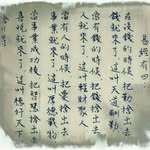 易經有四
在沒錢的時候把勤捨出去
錢就來了這叫天道酬勤
當有錢的時候把錢捨出去
人就來了這叫輕財聚人
當有人的時候把愛捨出去
事業就來了這叫厚德載物
當事業成功後把智慧捨出去
喜悅就來了這叫德行天下